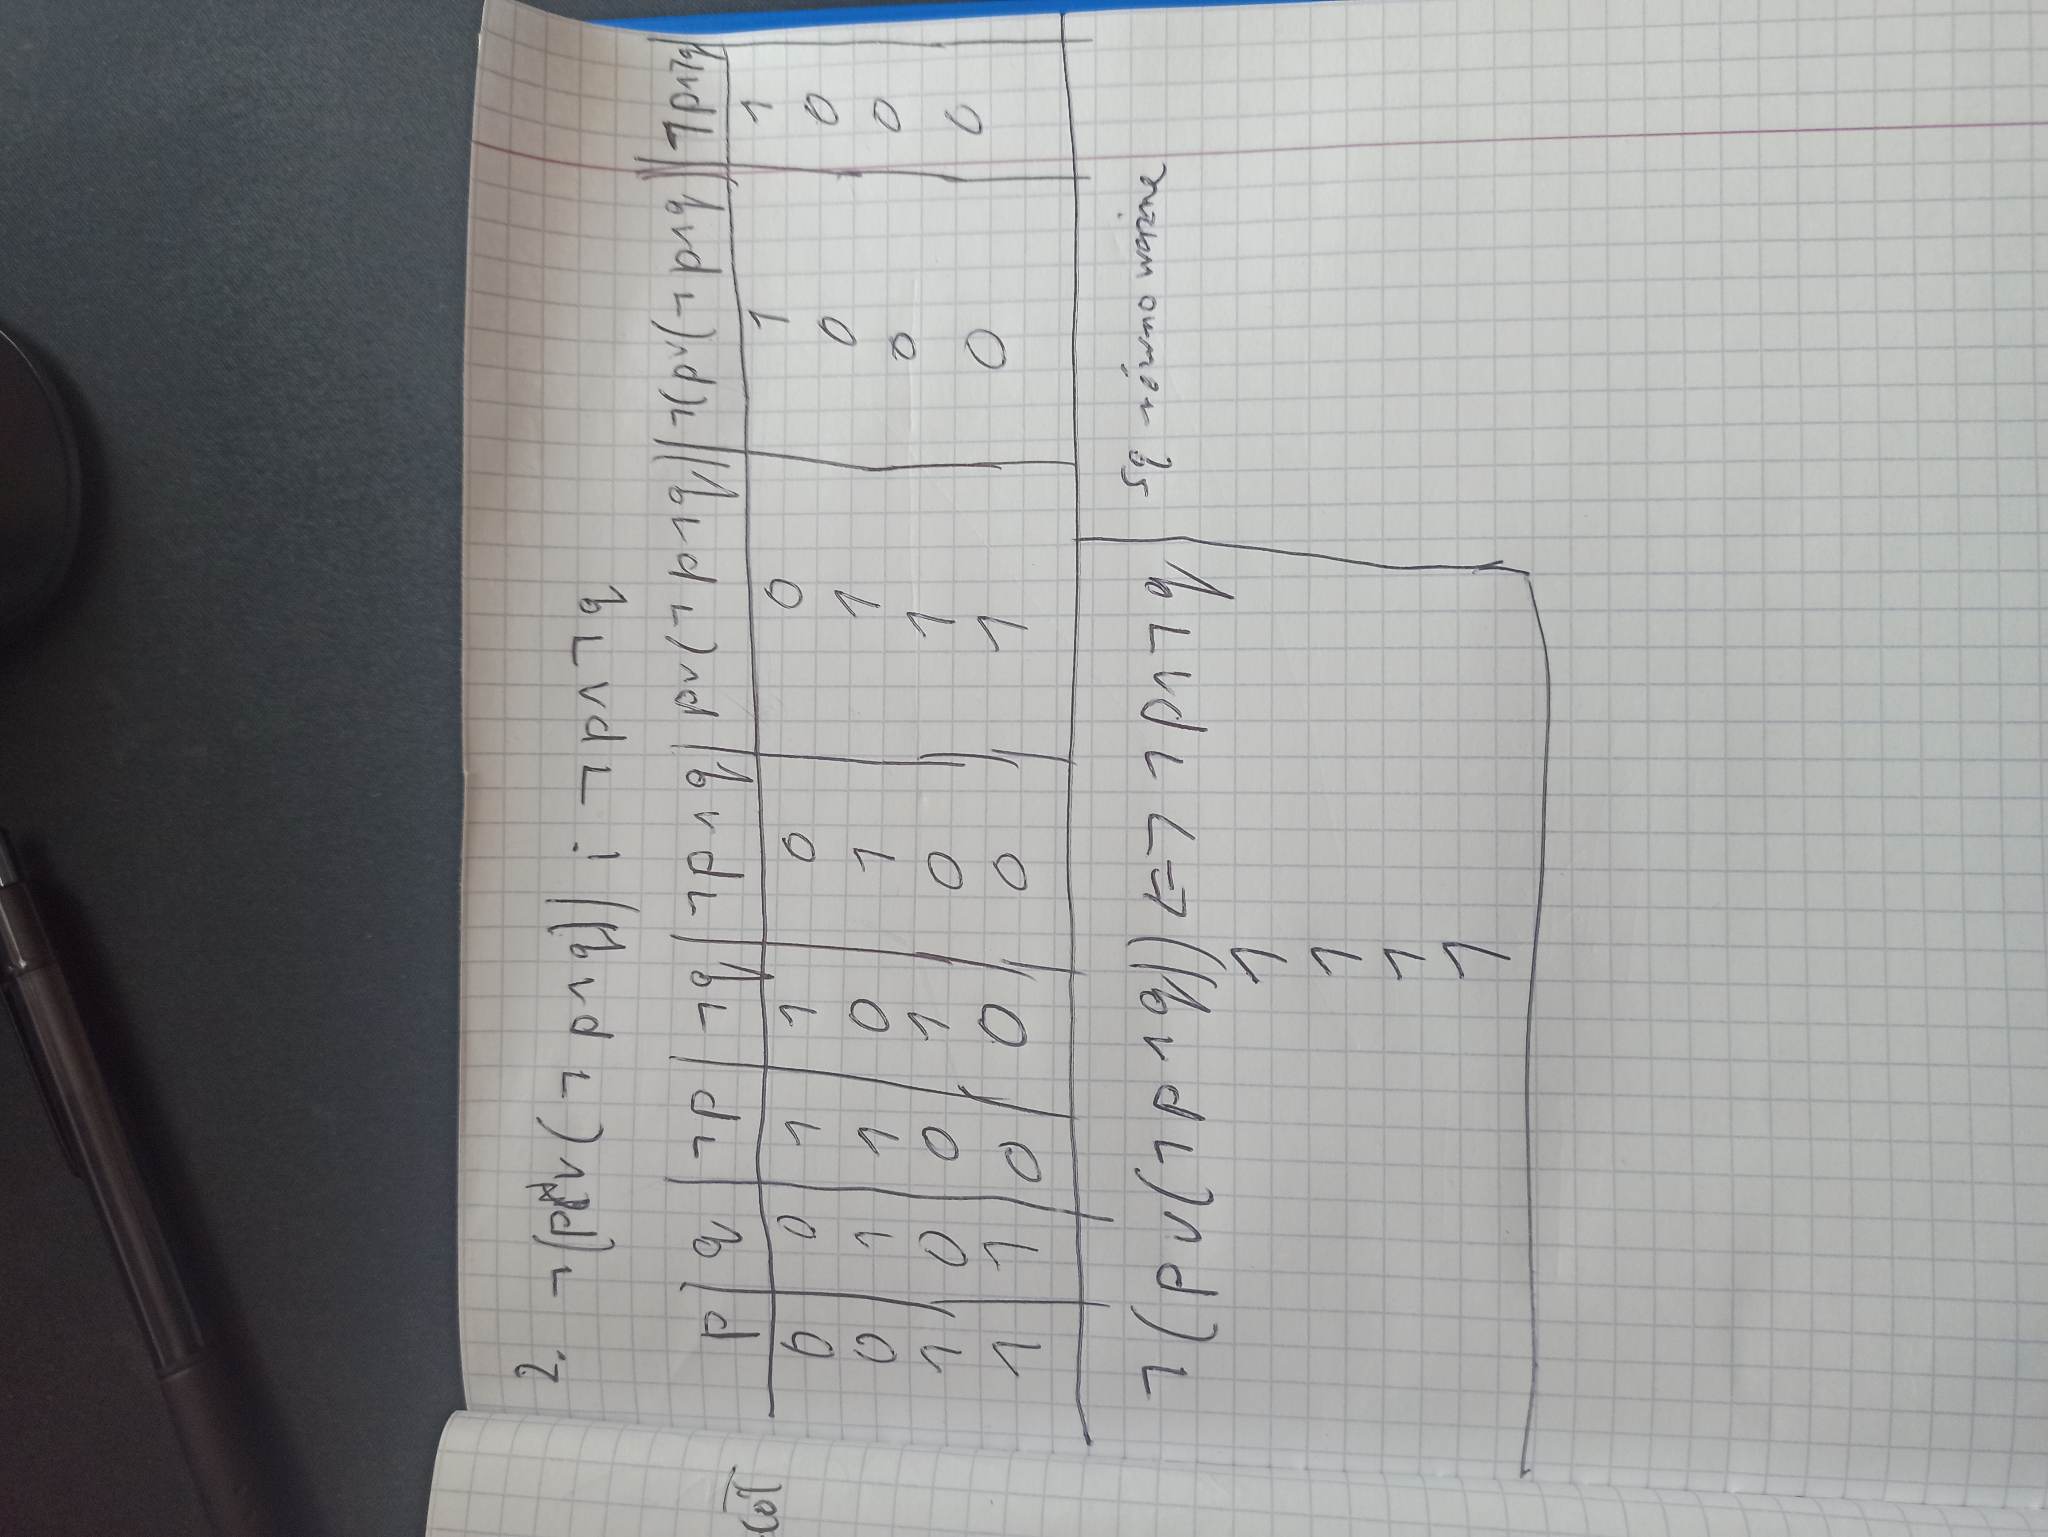 2. ¬(p∨(¬p∧q)) i ¬p∧¬q
p | q | ¬p | ¬q | ¬p∧q | p∨(¬p∧q) | ¬(p∨(¬p∧q) | ¬p∧¬q
0 0 1 1 0 0 1 1
0 1 1 0 1 1 0 0
1 0 0 1 0 1 0 0
1 1 0 0 0 1 0 0
¬(p∨(¬p∧q)) <=> ¬p∧¬q
są równoważne
1
1
1
1